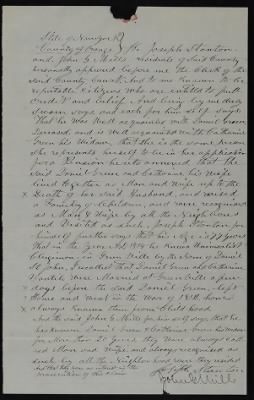 State of New York
County of Orange } SS Joseph Stanton
and John G Mills residents of said County
personally appeared before me the Clerk of the
said County Court, And to me known to be
reputable Citizens who are entitled to full
credit and belief. And being by me duly
sworn says and each for himself says
that he was Well acquainted with Daniel Green
Deceased, and is Well acquainted with Catharine
Green his Widow, that she is the same person
she represents herself to be in her application
for a Pension hereto annexed, that the
said Daniel Green and Catharine his Wife
lived together as Man and Wife up to the
Death of her said Husband, and raised
a Family of Children, and were recognised
as Man & Wife by all the Neighbours
and treated as such, Joseph Stanton for
himself further says that his Age is 77 years
that in the year 1814 his
Clergyman in by the Name of Daniel
St John, that Daniel Green and Catharine
were Married
days before the said Daniel Green left
Home and went in the War of 1812, has
always known them from Childhood
And the said John G. Mills for himself says that he
has known Daniel Green & Catharine Green his widow
for More than 20 years, they were always called
Man and Wife, and always recognised as
such by all the Neighbors where they resided
And that they have no interest in the
prosecution of this claim
John G Mills